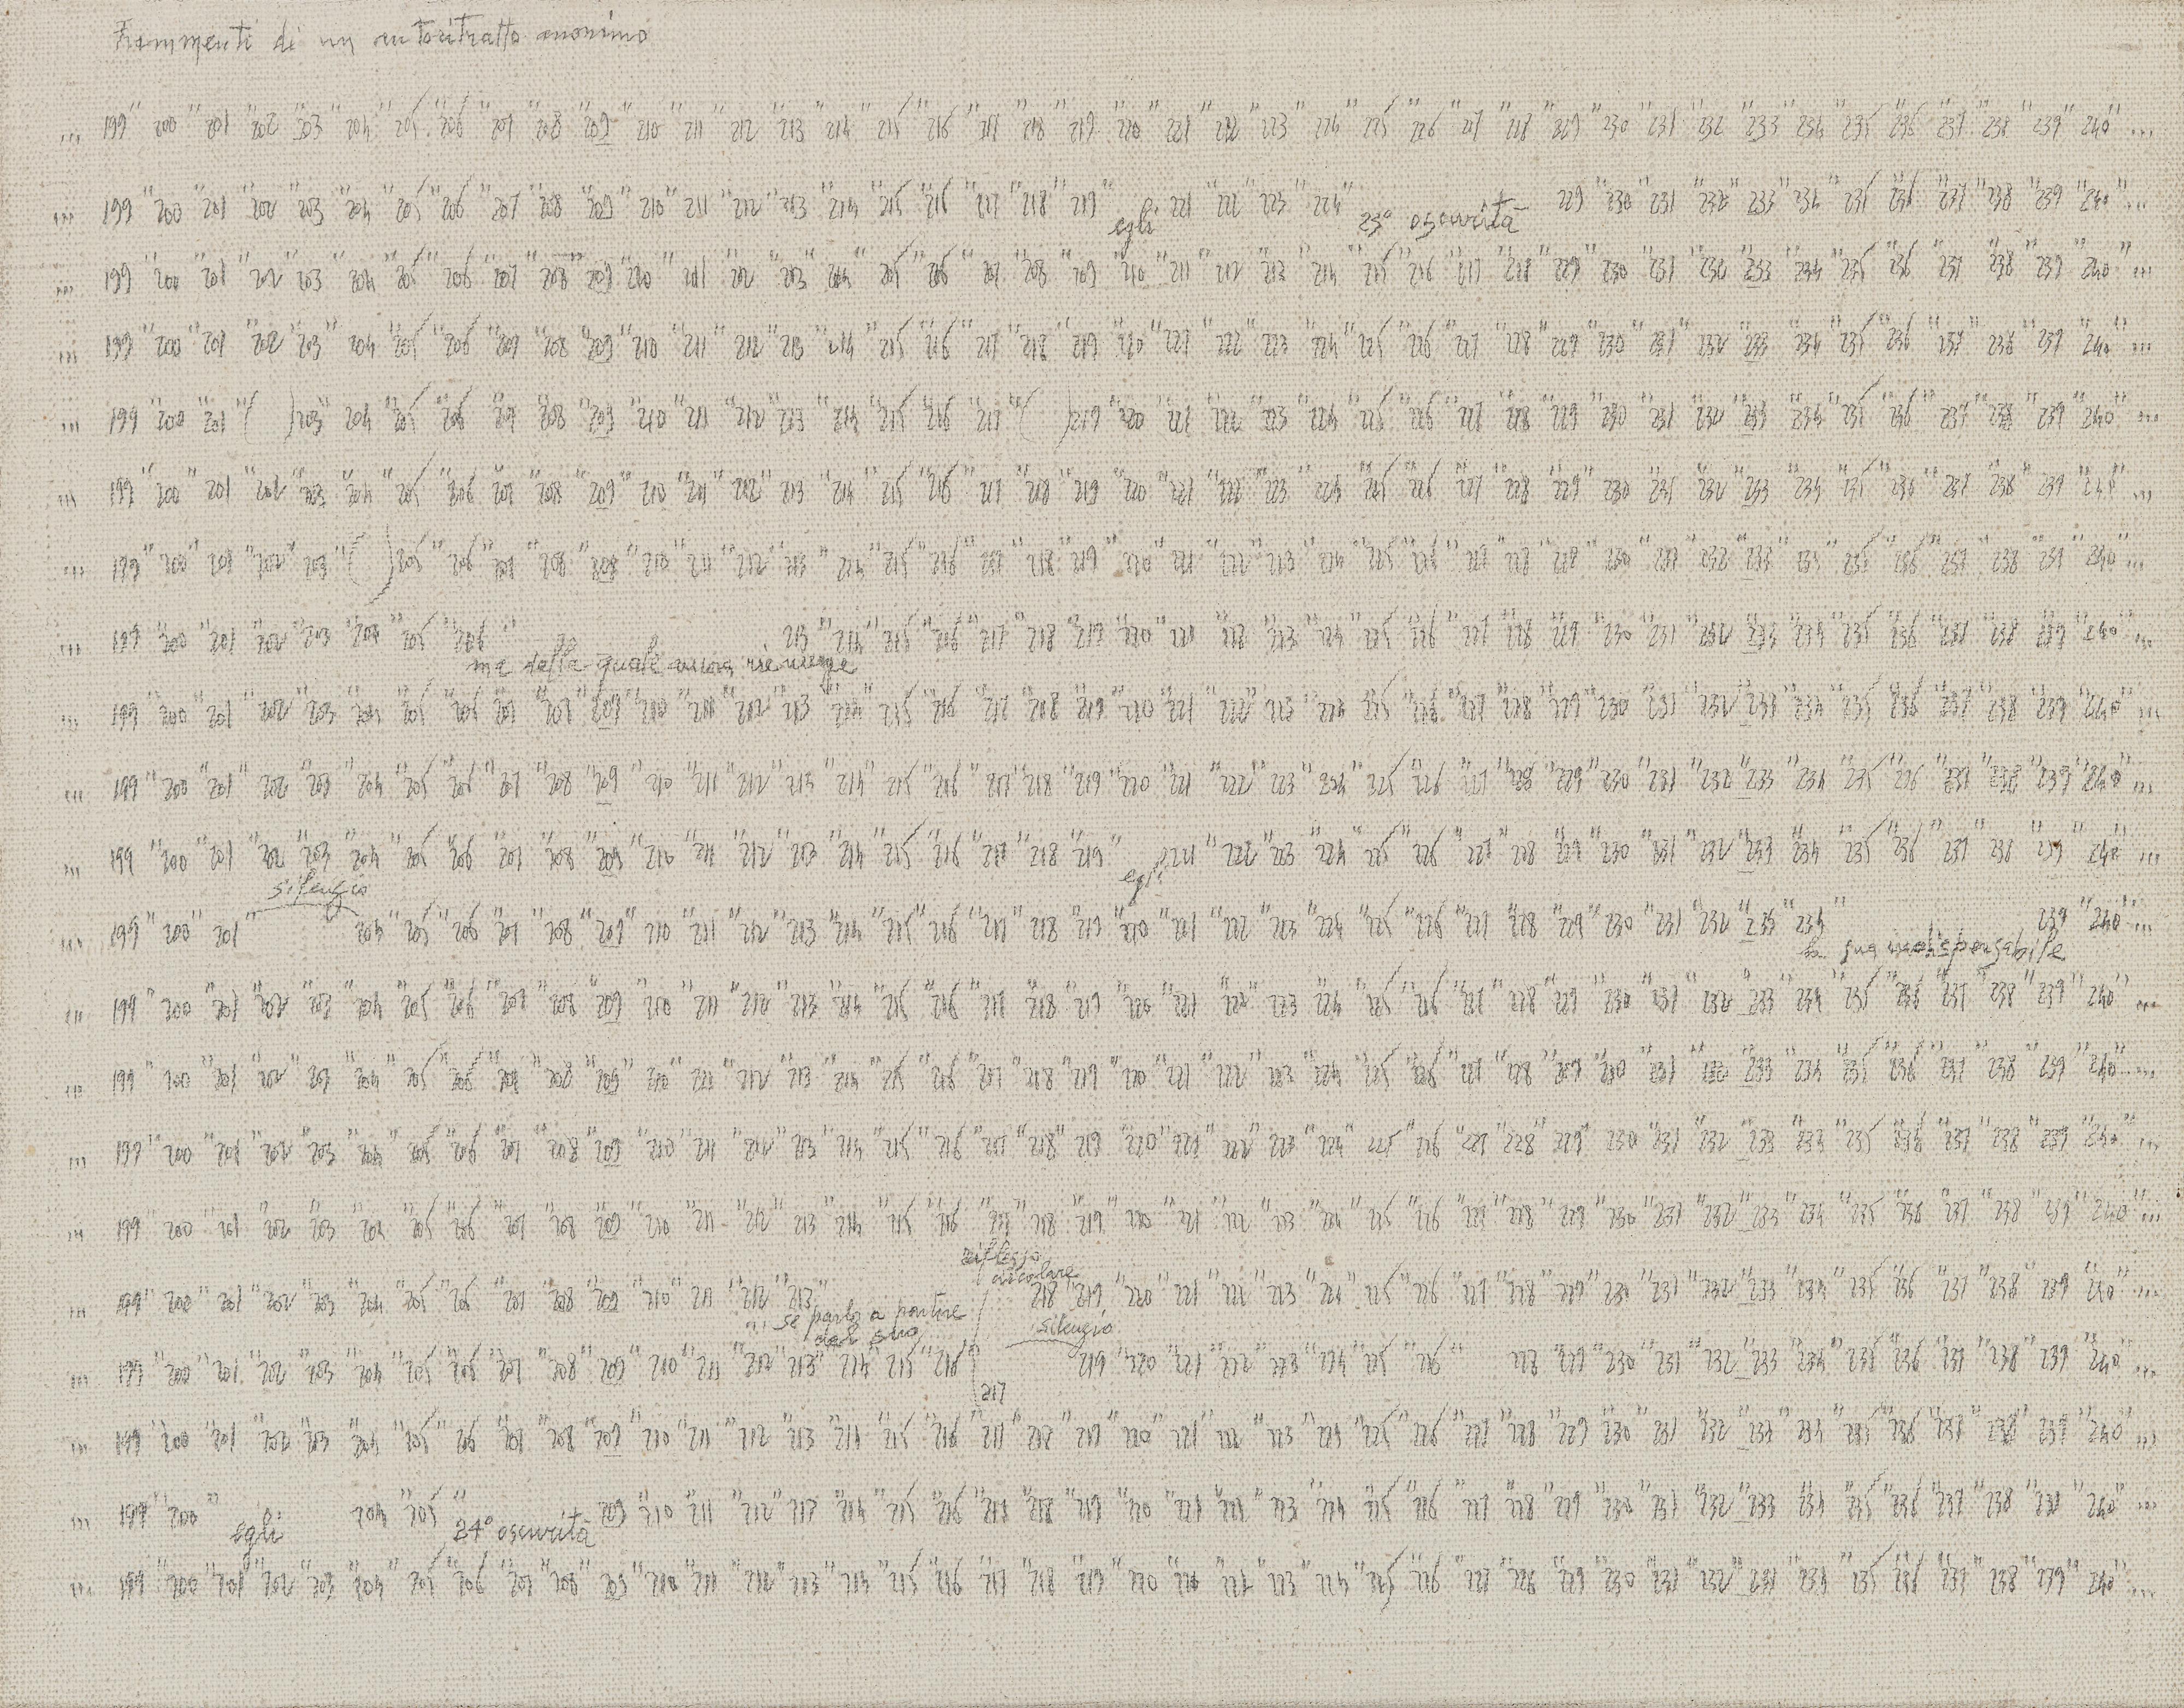 Frammenti di un autoritratto anonimo
... 199 "200 "201 "202 "203 "204 "205 "206 "207 "208 "209 "210 "211 "212 "213 "214 "215 "216 "217 "218 "219 "220 "221 "222 "223 "224 "225 "226 "227 "228 "229 "230 "231 "232 "233 "234 "235 "236 "237 "238 "239 "240" ...
... 199 "200 "201 "202 "203 "204 "205 "206 "207 "208 "209 "210 "211 "212 "213 "214 "215 "216 "217 "218 "219 " egli 221 "222 "223 "224 " 23° oscurità 229 "230 "231 "232 "233 "234 "235 "236 "237 "238 "239 "240" ...
... 199 "200 "201 "202 "203 "204 "205 "206 "207 "208 "209 "210 "201 "202 "203 "204 "205 "206 "207 "208 "209 "210 "211 "212 "213 "214 "215 "216 "217 "218 "229 "230 "231 "232 "233 "234 "235 "236 "237 "238 "239 "240" ...
... 199 "200 "201 "202 "203 "204 "205 "206 "207 "208 "209 "210 "211 "212 "213 "214 "215 "216 "217 "218 "219 "220 "221 "222 "223 "224 "225 "226 "227 "228 "229 "230 "231 "232 "233 "234 "235 "236 "237 "238 "239 "240" ...
... 199 "200 "201 "( )203 "204 "205 "206 "207 "208 "209 "210 "211 "212 "213 "214 "215 "216 "217 "( )219 "220 "221 "222 "223 "224 "225 "226 "227 "228 "229 "230 "231 "232 "233 "234 "235 "236 "237 "238 "239 "240" ...
... 199 "200 "201 "202 "203 "204 "205 "206 "207 "208 "209 "210 "211 "212 "213 "214 "215 "216 "217 "218 "219 "220 "221 "222 "223 "224 "225 "226 "227 "228 "229 "230 "231 "232 "233 "234 "235 "236 "237 "238 "239 "240" ...
... 199 "200 "201 "202 "203 "( )205 "206 "207 "208 "209 "210 "211 "212 "213 "214 "215 "216 "217 "218 "219 "220 "221 "222 "223 "224 "225 "226 "227 "228 "229 "230 "231 "232 "233 "234 "235 "236 "237 "238 "239 "240" ...
... 199 "200 "201 "202 "203 "204 "205 "206 " ma dalla quale ancora riemerge 213 "214 "215 "216 "217 "218 "219 "220 "221 "222 "223 "224 "225 "226 "227 "228 "229 "230 "231 "232 "233 "234 "235 "236 "237 "238 "239 "240" ...
... 199 "200 "201 "202 "203 "204 "205 "206 "207 "208 "209 "210 "211 "212 "213 "214 "215 "216 "217 "218 "219 "220 "221 "222 "223 "224 "225 "226 "227 "228 "229 "230 "231 "232 "233 "234 "235 "236 "237 "238 "239 "240" ...
... 199 "200 "201 "202 "203 "204 "205 "206 "207 "208 "209 "210 "211 "212 "213 "214 "215 "216 "217 "218 "219 "220 "221 "222 "223 "224 "225 "226 "227 "228 "229 "230 "231 "232 "233 "234 "235 "236 "237 "238 "239 "240" ...
... 199 "200 "201 "202 "203 "204 "205 "206 "207 "208 "209 "210 "211 "212 "213 "214 "215 "216 "217 "218 "219 " egli 221 "222 "223 "224 "225 "226 "227 "228 "229 "230 "231 "232 "233 "234 "235 "236 "237 "238 "239 "240" ...
... 199 "200 "201 " silenzio 204 "205 "206 "207 "208 "209 "210 "211 "212 "213 "214 "215 "216 "217 "218 "219 "220 "221 "222 "223 "224 "225 "226 "227 "228 "229 "230 "231 "232 "233 "234 " la sua indispensabile 239 "240" ...
... 199 "200 "201 "202 "203 "204 "205 "206 "207 "208 "209 "210 "211 "212 "213 "214 "215 "216 "217 "218 "219 "220 "221 "222 "223 "224 "225 "226 "227 "228 "229 "230 "231 "232 "233 "234 "235 "236 "237 "238 "239 "240" ...
... 199 "200 "201 "202 "203 "204 "205 "206 "207 "208 "209 "210 "211 "212 "213 "214 "215 "216 "217 "218 "219 "220 "221 "222 "223 "224 "225 "226 "227 "228 "229 "230 "231 "232 "233 "234 "235 "236 "237 "238 "239 "240" ...
... 199 "200 "201 "202 "203 "204 "205 "206 "207 "208 "209 "210 "211 "212 "213 "214 "215 "216 "217 "218 "219 "220 "221 "222 "223 "224 "225 "226 "227 "228 "229 "230 "231 "232 "233 "234 "235 "236 "237 "238 "239 "240" ...
... 199 "200 "201 "202 "203 "204 "205 "206 "207 "208 "209 "210 "211 "212 "213 "214 "215 "216 "217 "218 "219 "220 "221 "222 "223 "224 "225 "226 "227 "228 "229 "230 "231 "232 "233 "234 "235 "236 "237 "238 "239 "240" ...
... 199 "200 "201 "202 "203 "204 "205 "206 "207 "208 "209 "210 "211 "212 "213 " ... se parla a partire dal suo riflesso circolare 218 "219 "220 "221 "222 "223 "224 "225 "226 "227 "228 "229 "230 "231 "232 "233 "234 "235 "236 "237 "238 "239 "240" ...
... 199 "200 "201 "202 "203 "204 "205 "206 "207 "208 "209 "210 "211 "212 "213 "214 "215 "216 " 217 silenzio 219 "220 "221 "222 "223 "224 "225 "226 " 228 "229 "230 "231 "232 "233 "234 "235 "236 "237 "238 "239 "240" ...
... 199 "200 "201 "202 "203 "204 "205 "206 "207 "208 "209 "210 "211 "212 "213 "214 "215 "216 "217 "218 "219 "220 "221 "222 "223 "224 "225 "226 "227 "228 "229 "230 "231 "232 "233 "234 "235 "236 "237 "238 "239 "240" ...
... 199 "200 " egli 204 "205 " 24° oscurità 209 "210 "211 "212 "213 "214 "215 "216 "217 "218 "219 "220 "221 "222 "223 "224 "225 "226 "227 "228 "229 "230 "231 "232 "233 "234 "235 "236 "237 "238 "239 "240" ...
... 199 "200 "201 "202 "203 "204 "205 "206 "207 "208 "209 "210 "211 "212 "213 "214 "215 "216 "217 "218 "219 "220 "221 "222 "223 "224 "225 "226 "227 "228 "229 "230 "231 "232 "233 "234 "235 "236 "237 "238 "239 "240" ...